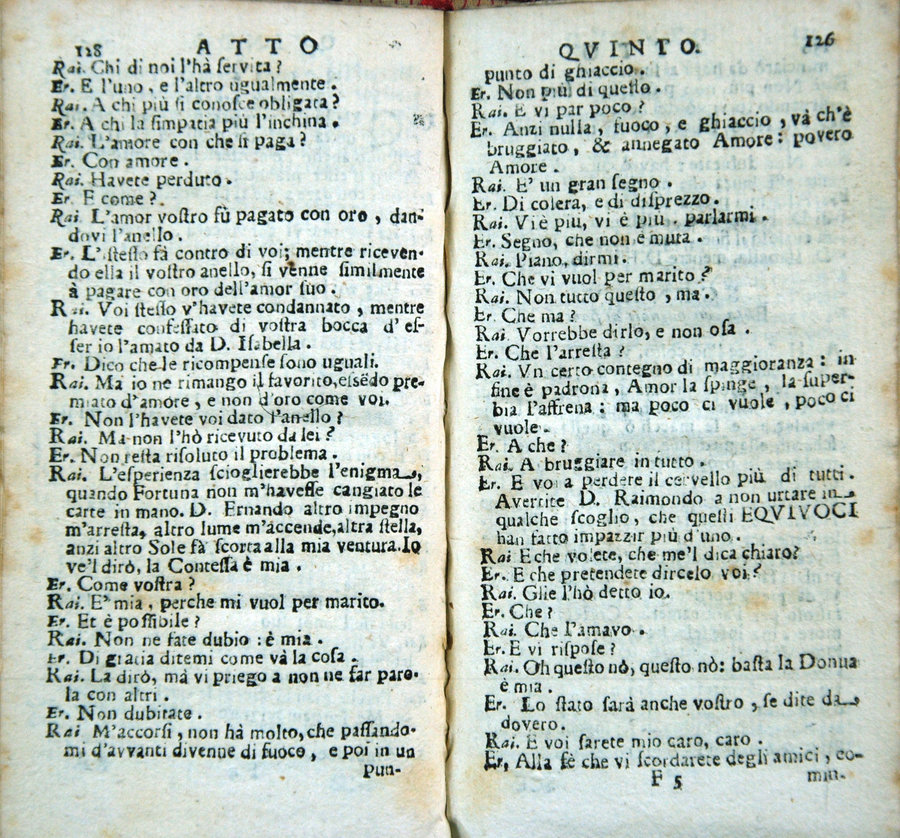 128 ATTO
Rai. Chi di noi l'hà servita?
Er. E l'uno, e l'altro ugualmente.
Rai. A chi più si conosce obligata?
Er. A chi la simpatia più l'inchina.
Rai. L'amore con che si paga?
Er. Con amore.
Rai. Havete perduto.
Er. E come?
Rai. L'amor vostro fù pagato con oro, dan-
dovi l'anello.
Er. L'istesso fà contro di voi; mentre riceven-
do ella il vostro anello, si venne similmente
à pagare con oro dell'amor suo.
Rai. Voi stesso v'havete condannato, mentre
havete confessato di vostra bocca d'es-
ser io l'amato da D. Isabella.
Er. Dico che le ricompense sono uguali.
Rai. Ma io ne rimango il favorito, essẽdo pre-
miato d'amore, e non d'oro come voi.
Er. Non l'havete voi dato l'anello?
Rai. Ma non l'hò ricevuto da lei?
Er. Non resta risoluto il problema.
Rai. L'esperienza scioglierebbe l'enigma,
quando Fortuna non m'havesse cangiato le
carte in mano. D. Ernando altro impegno
m'arresta, altro lume m'accende, altra stella,
anzi altro Sole fà scorta alla mia ventura. Io
ve'l dirò, la Contessa è mia.
Er. Come vostra?
Rai. E' mia, perche mi vuol per marito.
Er. Et è possibile?
Rai. Non ne fate dubio: è mia.
Er. Di gratia ditemi come và la cosa.
Rai. La dirò, mà vi priego a non ne far paro-
la con altri.
Er. Non dubitate.
Rai M'accorsi, non hà molto, che passando-
mi d'avvanti divenne di fuoco, e poi in un
pun-
QVINTO. 126
punto di ghiaccio.
Er. Non più di questo.
Rai. E vi par poco?
Er. Anzi nulla, fuoco, e ghiaccio, và ch'è
bruggiato, & annegato Amore: povero
Amore.
Rai. E' un gran segno.
Er. Di colera, e di disprezzo.
Rai. Vi è più, vi è più, parlarmi.
Er. Segno, che non è muta.
Rai. Piano, dirmi.
Er. Che vi vuol per marito?
Rai. Non tutto questo, ma.
Er. Che ma?
Rai. Vorrebbe dirlo, e non osa.
Er. Che l'arresta?
Rai. Vn certo contegno di maggioranza: in
fine è padrona, Amor la spinge, la super-
bia l'affrena: ma poco ci vuole, poco ci
vuole.
Er. A che?
Rai. A bruggiare in tutto.
Er. E voi a perdere il cervello più di tutti.
Avertite D. Raimondo a non urtare in
qualche scoglio, che questi EQVIVOCI
han fatto impazzir più d'uno.
Rai E che volete, che me'l dica chiaro?
Er. E che pretendete dircelo voi?
Rai. Glie l'hò detto io.
Er. Che?
Rai. Che l'amavo.
Er. E vi rispose?
Rai. Oh questo nò, questo nò: basta la Donna
è mia.
Er. Lo stato sarà anche vostro, se dite da
dovero.
Rai. E voi sarete mio caro, caro.
Er, Alla fè che vi scordarete degli amici, co-
F 5 min-